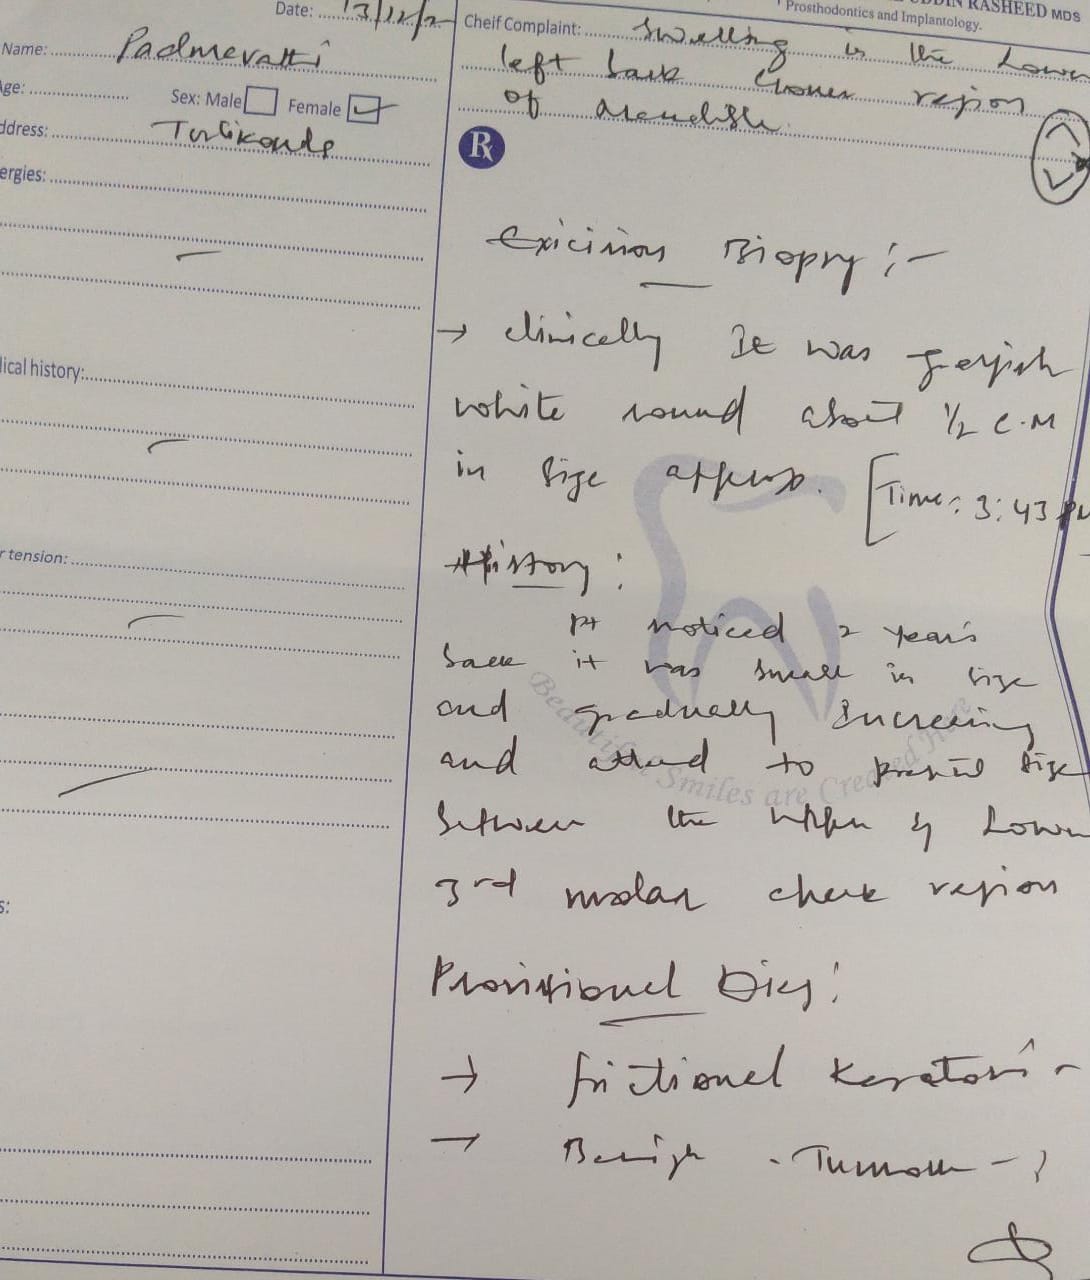 Date: 13/12/2
Name: Padmavathi
Age:
Sex: Male Female
ddress: Turlikonda
ergies:
lical history:
r tension:
s:
UDDIN RASHEED MDS
Prosthodontics and Implantology.
Cheif Complaint: Swelling in the Lower
left back cheek region
of
Rx
Exicision Biopsy :-
→ clinically It was greyish
white round about 1/2 C.M
in size approx. [Time: 3:43 PM
History :
Pt noticed 2 year's
back it was small in size
and gradually Increasing
and attend to present size
between the upper & Lower
3rd molar cheek region
Provisional Diag:
→ frictional Keratosis -
→ Benign - Tumour - ?
Beautiful Smiles are Created Here